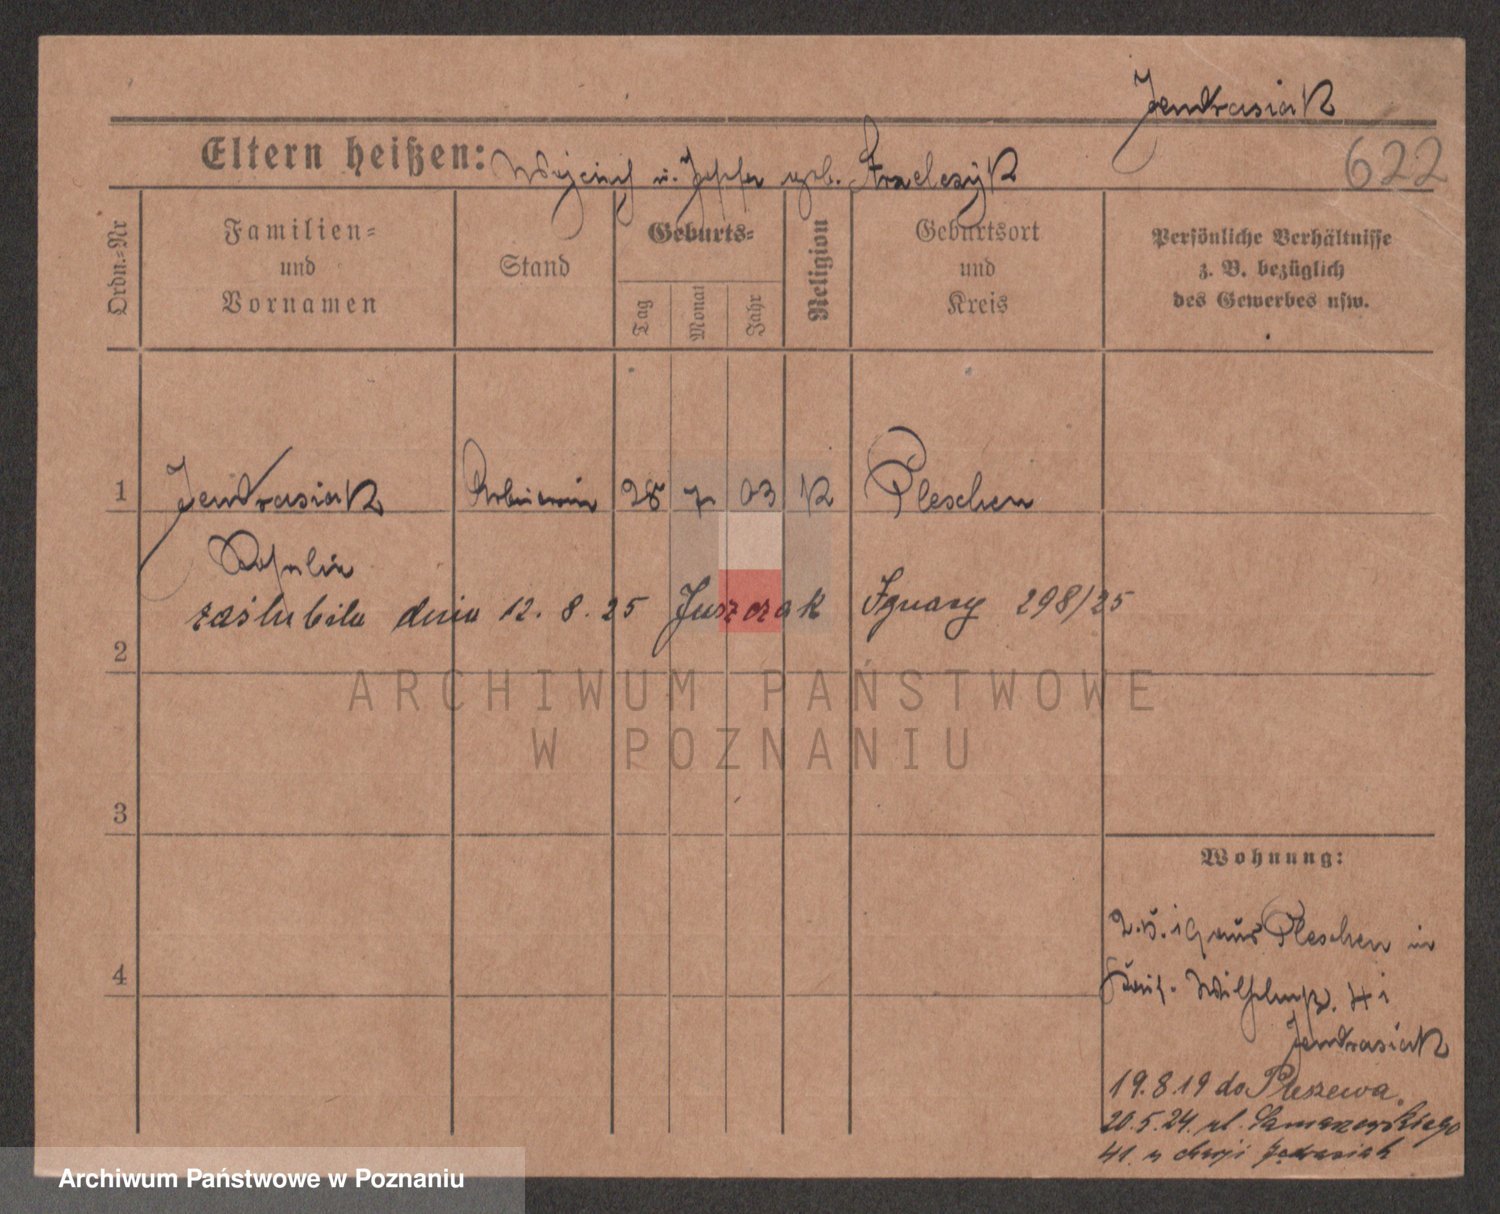 Jendrasiak
622
Eltern heißen: Wojciech u. Josefa geb. Strzelczyk
Ordn.-Nr
Familien-
und
Vornamen
Stand
Geburts-
Tag
Monat
Jahr
Religion
Geburtsort
und
Kreis
Persönliche Verhältnisse
z. B. bezüglich
des Gewerbes usw.
1 Jendrasiak Arbeiterin 28 7 03 K Pleschen
Rosalie
zaślubiła dnia 12. 8. 25 Juszczak Ignacy 298/25
2
ARCHIWUM PAŃSTWOWE
W POZNANIU
3
Wohnung:
19 aus Pleschen in
4
Wilhelmstr. 41
Jendrasiak
19.8.19 do Pleszewa.
20.5.24. ul.
41. u Jędrasiak
Archiwum Państwowe w Poznaniu